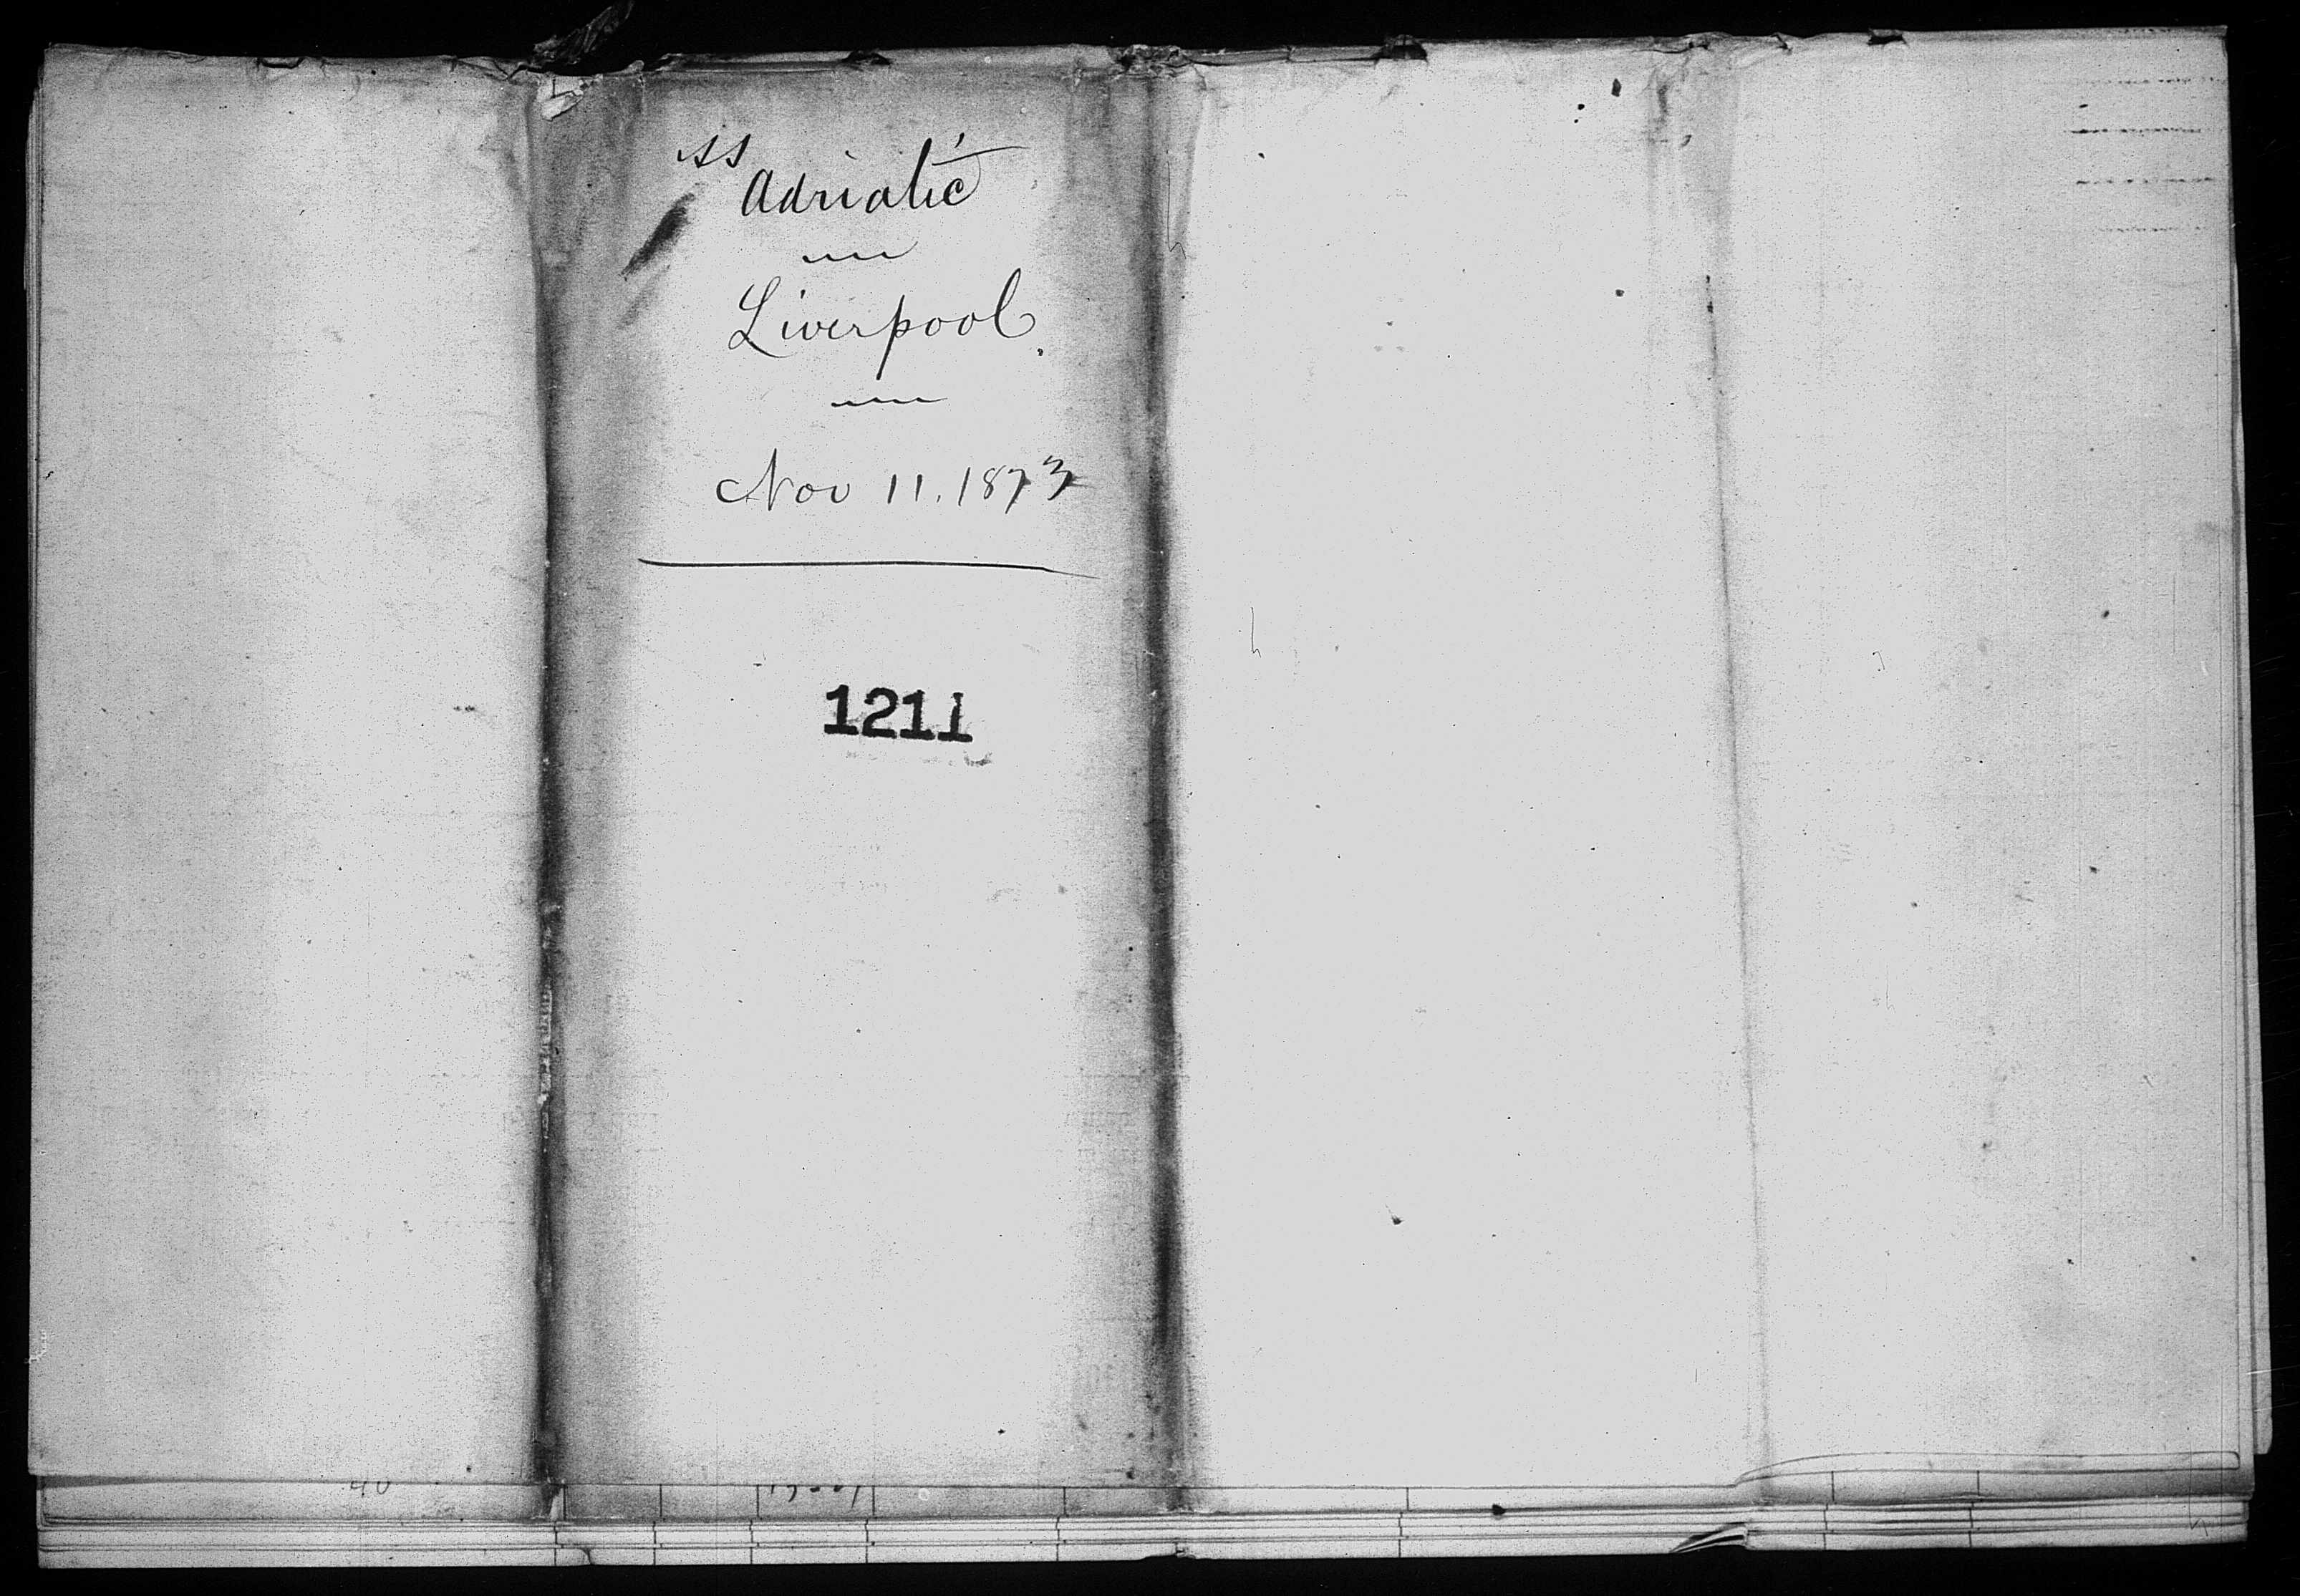 SS
Adriatic
Liverpool
Nov 11. 1873
1211
40